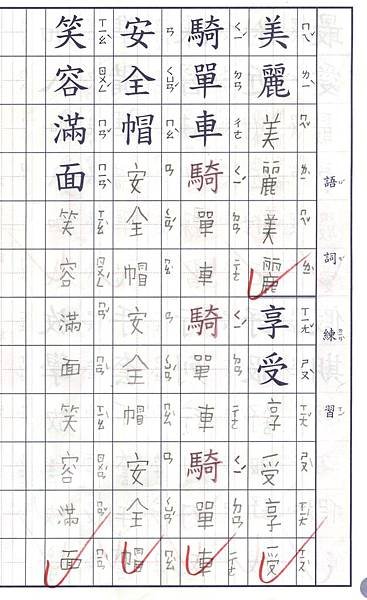 語詞練習
美麗美麗美麗享受享受享受
騎單車騎單車騎單車騎單車
安全帽安全帽安全帽安全帽
笑容滿面笑容滿面笑容滿面